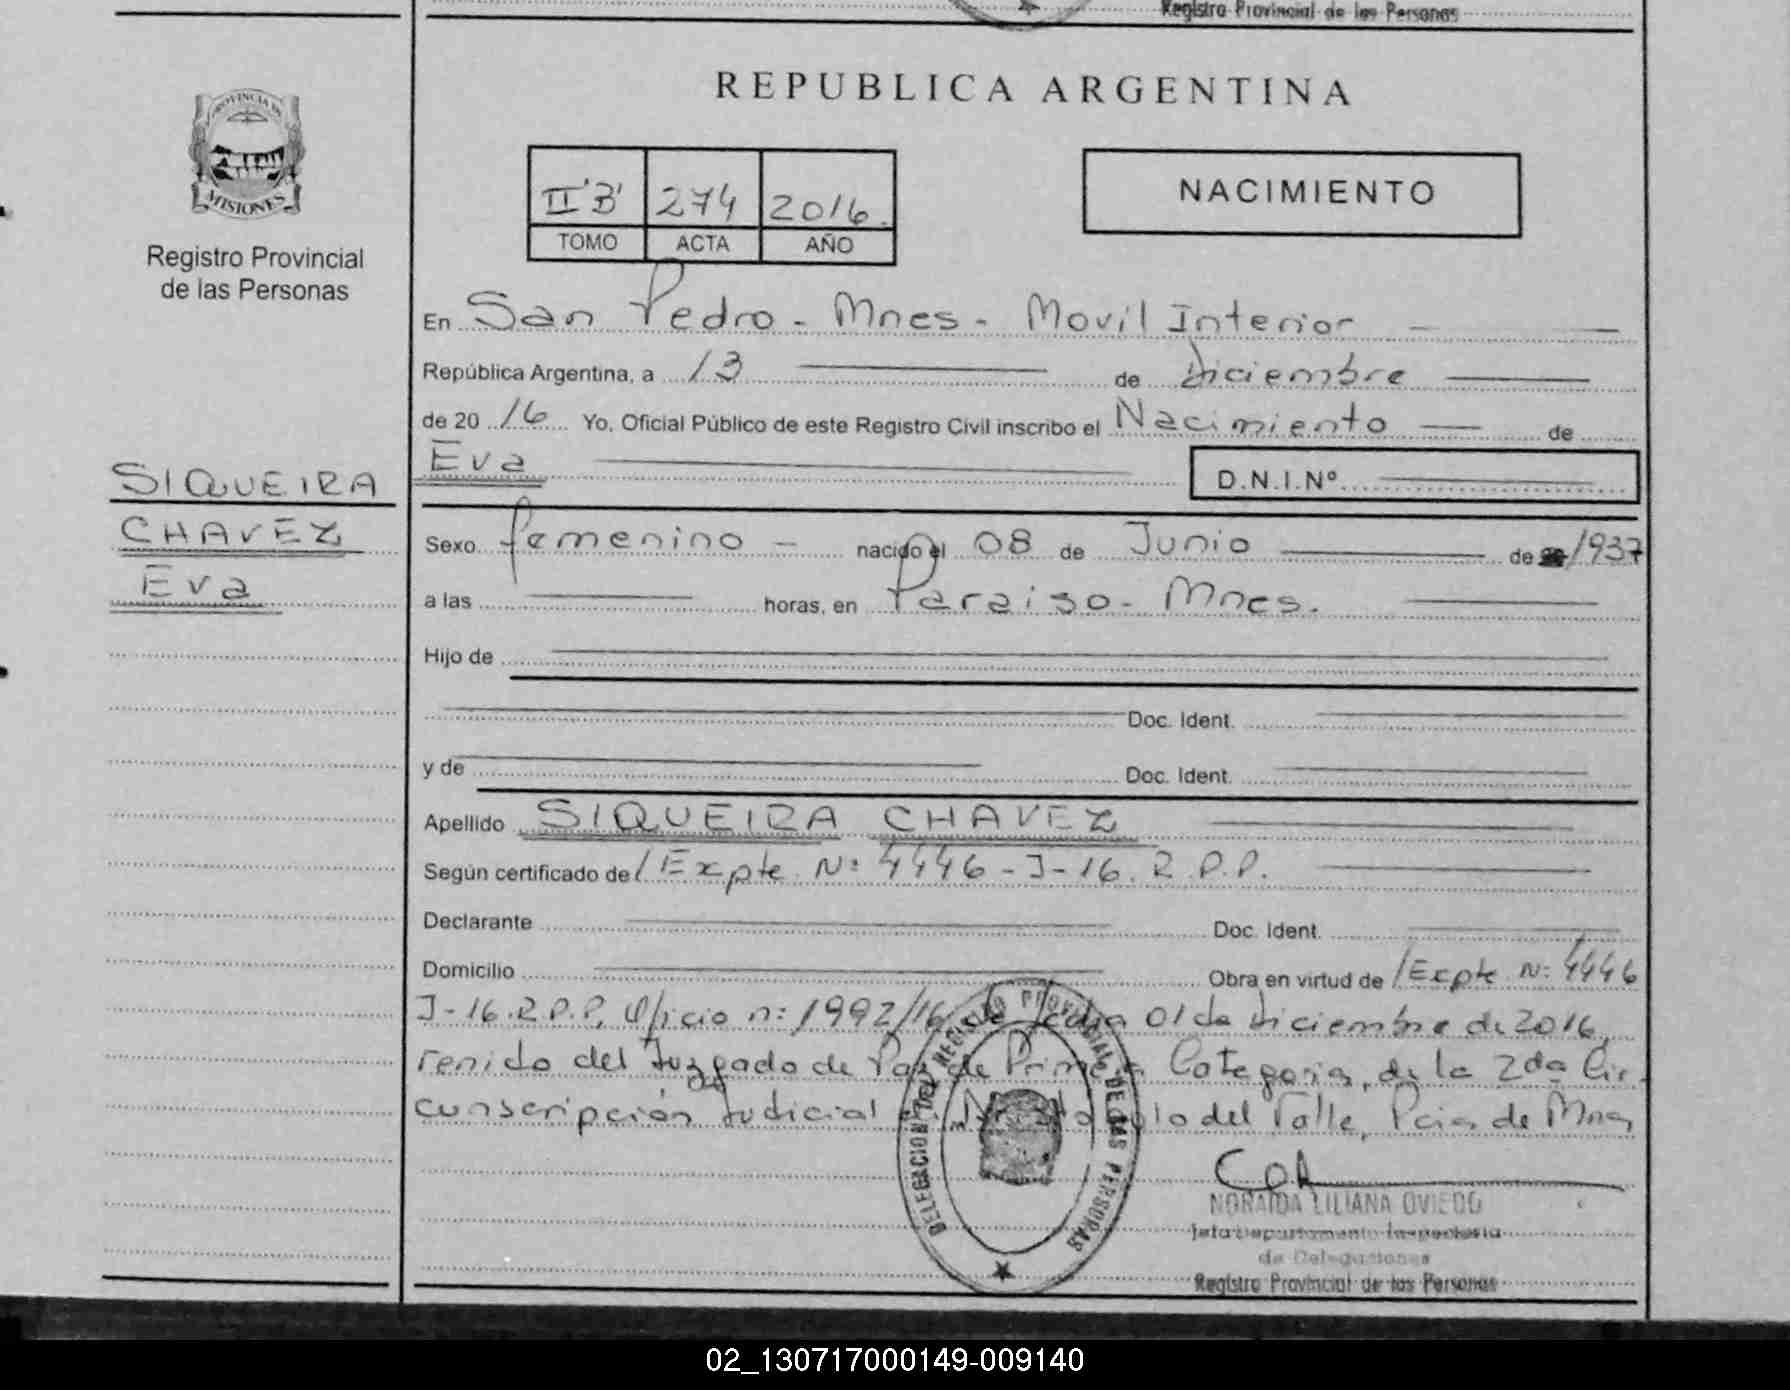 Registro Provincial de las Personas
REPUBLICA ARGENTINA
PROVINCIA DE
MISIONES
Registro Provincial
de las Personas
II "B" 274 2016.
TOMO ACTA AÑO
NACIMIENTO
En San Pedro - Mnes - Movil Interior
República Argentina, a 13 de Diciembre
de 20 16 Yo, Oficial Público de este Registro Civil inscribo el Nacimiento de
Eva D.N.I.Nº
SIQUEIRA
CHAVEZ
Eva
Sexo femenino - nacido el 08 de Junio de 1937
a las horas, en Paraiso - Mnes.
Hijo de
Doc. Ident.
y de Doc. Ident.
Apellido SIQUEIRA CHAVEZ
Según certificado de / Expte N: 4446 - J - 16. R.P.P.
Declarante Doc. Ident.
Domicilio Obra en virtud de / Expte N: 4446
J-16.R.P.P, Oficio n: 1992/16 de fecha 01 de Diciembre de 2016,
renido del Juzgado de Paz de Primera Categoria, de la 2da Cir-
cunscripción Judicial del Valle, Pcia de Mnes
DELEGACION DEL REGISTRO PROVINCIAL DE LAS PERSONAS
NORAIDA LILIANA OVIEDO
Jefa Departamento Inspectoria
de Delegaciones
Registro Provincial de las Personas
02_130717000149-009140